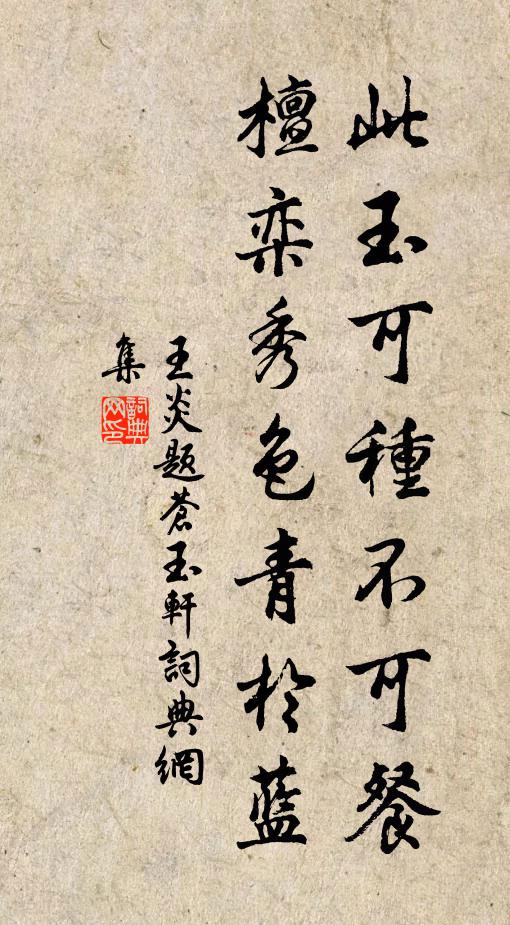 此玉可種不可餐
檀栾秀色青於藍
王炎題蒼玉軒詞典網
集
詞典網印